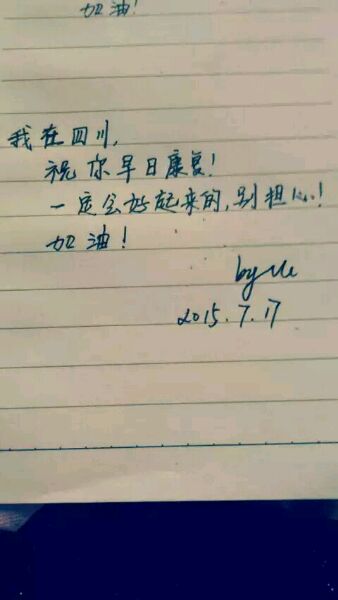 加油!
我在四川,
祝你早日康复!
一定会好起来的,别担心!
加油!
by
2015.7.17